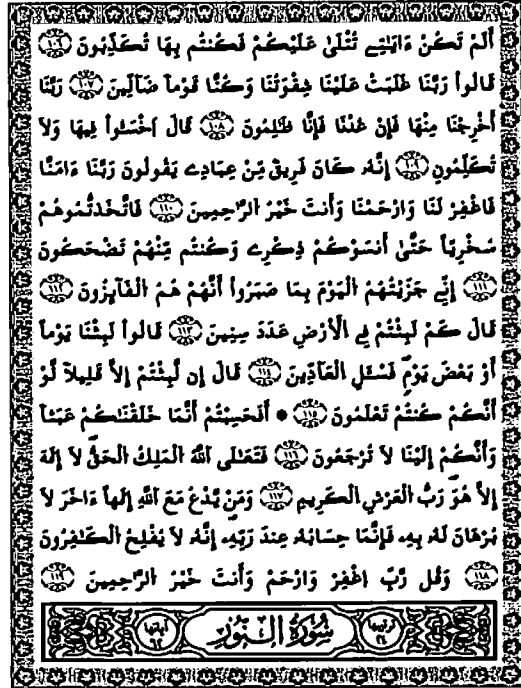 أَلَمْ تَكُنْ ءَايَٰتِے تُتْلَىٰ عَلَيْكُمْ فَكُنتُم بِهَا تُكَذِّبُونَ ١٠٦
قَالُواْ رَبَّنَا غَلَبَتْ عَلَيْنَا شِقْوَتُنَا وَكُنَّا قَوْماً ضَآلِّينَ ١٠٧ رَبَّنَا
أَخْرِجْنَا مِنْهَا فَإِنْ عُدْنَا فَإِنَّا ظَٰلِمُونَ ١٠٨ قَالَ اَخْسَـُٔواْ فِيهَا وَلَا
تُكَلِّمُونِ ١٠٩ إِنَّهُۥ كَانَ فَرِيقٌ مِّنْ عِبَادِے يَقُولُونَ رَبَّنَا ءَامَنَّا
فَاغْفِرْ لَنَا وَارْحَمْنَا وَأَنتَ خَيْرُ الرَّٰحِمِينَ ١١٠ فَاتَّخَذتُّمُوهُمْ
سُخْرِيّاً حَتَّىٰ أَنسَوْكُمْ ذِكْرِے وَكُنتُم مِّنْهُمْ تَضْحَكُونَ
١١١ إِنِّے جَزَيْتُهُمُ الْيَوْمَ بِمَا صَبَرُواْ أَنَّهُمْ هُمُ الْفَآئِزُونَ ١١٢
قَالَ كَمْ لَبِثْتُمْ فِے الْأَرْضِ عَدَدَ سِنِينَ ١١٣ قَالُواْ لَبِثْنَا يَوْماً
أَوْ بَعْضَ يَوْمٍ فَسْـَٔلِ الْعَآدِّينَ ١١٤ قَالَ إِن لَّبِثْتُمْ إِلَّا قَلِيلاً لَّوْ
أَنَّكُمْ كُنتُمْ تَعْلَمُونَ ١١٥ * أَفَحَسِبْتُمْ أَنَّمَا خَلَقْنَاكُمْ عَبَثاً
وَأَنَّكُمْ إِلَيْنَا لَا تُرْجَعُونَ ١١٦ فَتَعَٰلَى اَللَّهُ الْمَلِكُ الْحَقُّ لَا إِلَٰهَ
إِلَّا هُوَ رَبُّ الْعَرْشِ الْكَرِيمِ ١١٧ وَمَنْ يَّدْعُ مَعَ اَللَّهِ إِلَٰهاً ءَاخَرَ لَا
بُرْهَٰنَ لَهُۥ بِهِۦ فَإِنَّمَا حِسَابُهُۥ عِندَ رَبِّهِۦ إِنَّهُۥ لَا يُفْلِحُ الْكَٰفِرُونَ
١١٨ وَقُل رَّبِّ اِغْفِرْ وَارْحَمْ وَأَنتَ خَيْرُ الرَّٰحِمِينَ ١١٩
ترتيبها ٢٤ سُورَةُ النُّورِ آياتها ٦٢